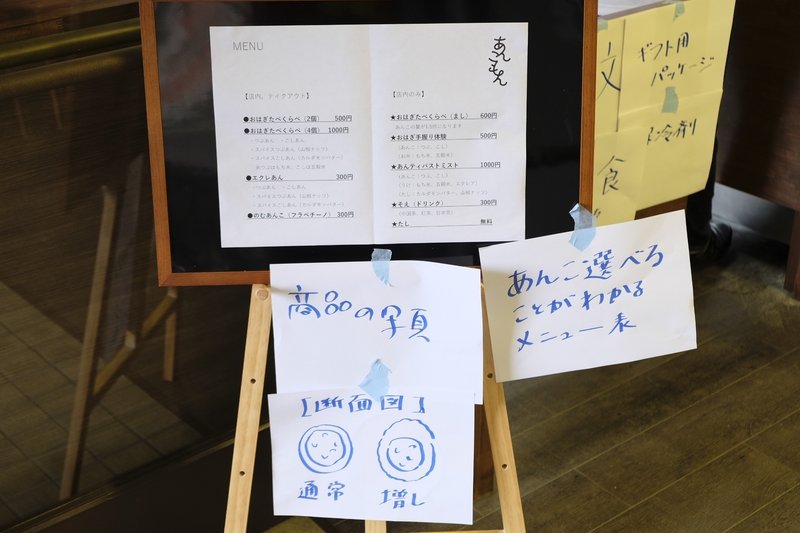 MENU
あんもん
【店内、テイクアウト】
●おはぎたべくらべ（2個） 500円
●おはぎたべくらべ（4個） 1000円
・つぶあん ・こしあん
・スパイスつぶあん（山椒ナッツ）
・スパイスこしあん（カルダモンバター）
●エクレあん 300円
・つぶあん ・こしあん
・スパイスつぶあん（山椒ナッツ）
・スパイスこしあん（カルダモンバター）
●のむあんこ（フラペチーノ） 300円
【店内のみ】
★おはぎたべくらべ（まし） 600円
あんこの量が1.5倍になります
★おはぎ手握り体験 500円
（あんこ：つぶ、こし）
（お米：もち米、五穀米）
★あんティパストミスト 1000円
（あんこ：つぶ、こし）
（うけ：もち米、五穀米、エクレア）
（たし：カルダモンバター、山椒ナッツ）
★そえ（ドリンク） 300円
（中国茶、紅茶、日本茶）
★たし 無料
ギフト用
パッケージ
文
食
保冷剤
商品の写真
あんこ選べる
ことがわかる
メニュー表
[断面図]
通常 増し